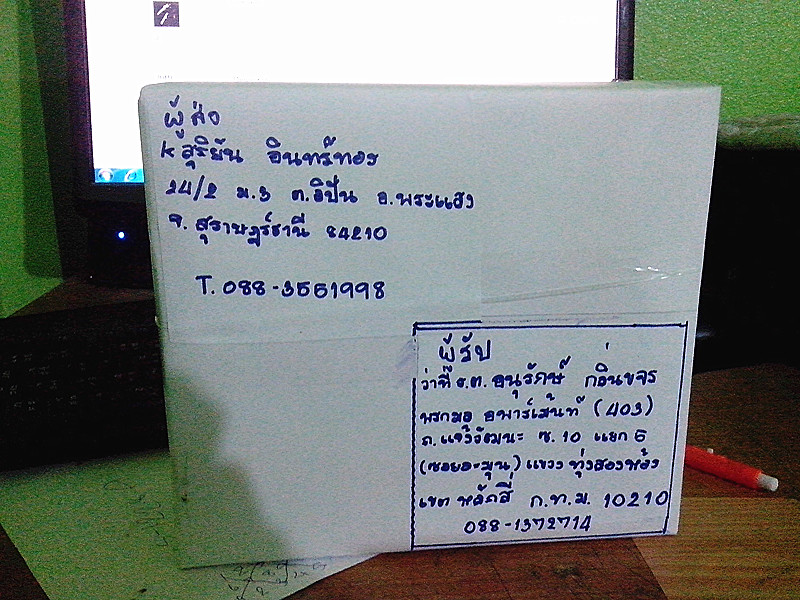 ผู้ส่ง
K สุริยัน อินทร์ทอง
24/2 ม.3 ต.อิปัน อ.พระแสง
จ. สุราษฎร์ธานี 84210
T. 088-3561998
ผู้รับ
ว่าที่ ร.ต. อนุรักษ์ ก่อินขจร
พรกมล อพาร์เม้นท์ (403)
ถ.แจ้งวัฒนะ ซ.10 แยก 5
(ซอยอะมุน) แขวง ทุ่งสองห้อง
เขต หลักสี่ ก.ท.ม. 10210
088-1372714